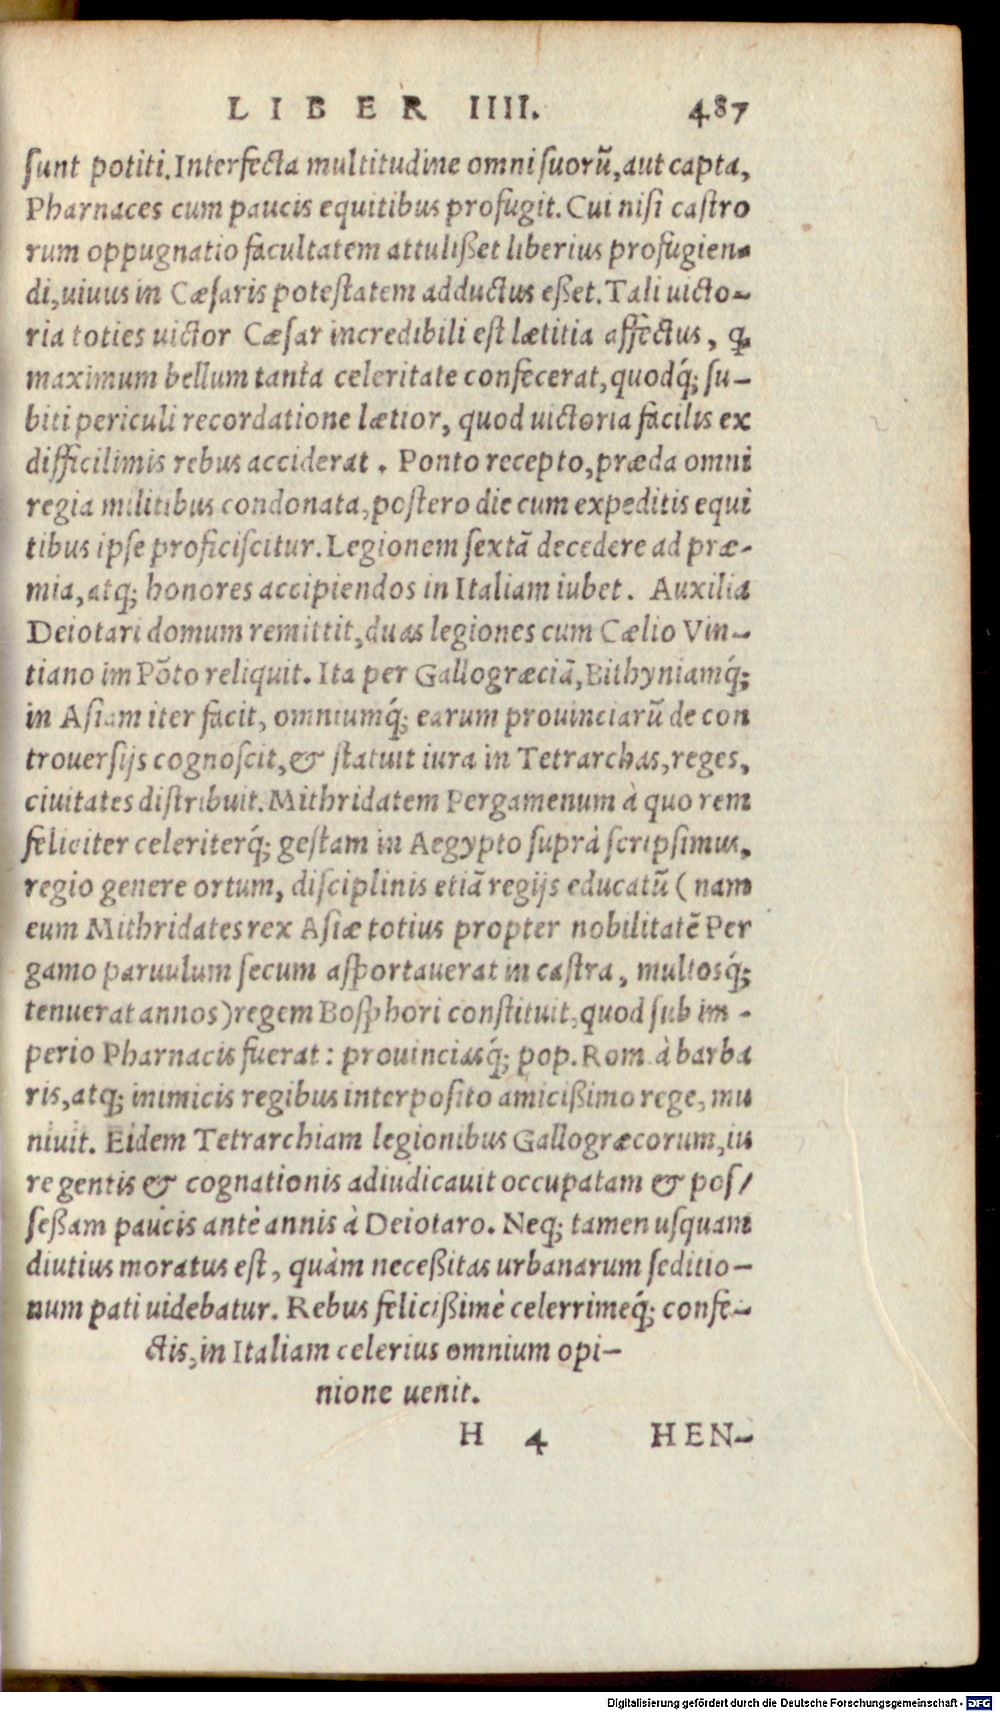 LIBER IIII. 487
sunt potiti. Interfecta multitudine omni suorũ, aut capta,
Pharnaces cum paucis equitibus profugit. Cui nisi castro
rum oppugnatio facultatem attulißet liberius profugien-
di, uiuus in Cæsaris potestatem adductus eßet. Tali uicto-
ria toties uictor Cæsar incredibili est lætitia affectus, ꝙ
maximum bellum tanta celeritate confecerat, quodq́; su-
biti periculi recordatione lætior, quod uictoria facilis ex
difficilimis rebus acciderat. Ponto recepto, præda omni
regia militibus condonata, postero die cum expeditis equi
tibus ipse proficiscitur. Legionem sextã decedere ad præ-
mia, atq; honores accipiendos in Italiam iubet. Auxilia
Deiotari domum remittit, duas legiones cum Cælio Vin-
tiano im Põto reliquit. Ita per Gallogræciã, Bithyniamq́;
in Asiam iter facit, omniumq́; earum prouinciarũ de con
trouersijs cognoscit, & statuit iura in Tetrarchas, reges,
ciuitates distribuit. Mithridatem Pergamenum à quo rem
feliciter celeriterq́; gestam in Aegypto suprà scripsimus,
regio genere ortum, disciplinis etiã regijs educatũ (nam
eum Mithridates rex Asiæ totius propter nobilitatẽ Per
gamo paruulum secum asportauerat in castra, multosq́;
tenuerat annos) regem Bosphori constituit, quod sub im-
perio Pharnacis fuerat: prouinciasq́; pop. Rom. à barba
ris, atq; inimicis regibus interposito amicißimo rege, mu
niuit. Eidem Tetrarchiam legionibus Gallogræcorum, iu
re gentis & cognationis adiudicauit occupatam & pos/
seßam paucis antè annis à Deiotaro. Neq; tamen usquam
diutius moratus est, quàm neceßitas urbanarum seditio-
num pati uidebatur. Rebus felicißimè celerrimeq́; confe-
ctis, in Italiam celerius omnium opi-
nione uenit.
H 4 HEN-
Digitalisierung gefördert durch die Deutsche Forschungsgemeinschaft - DFG